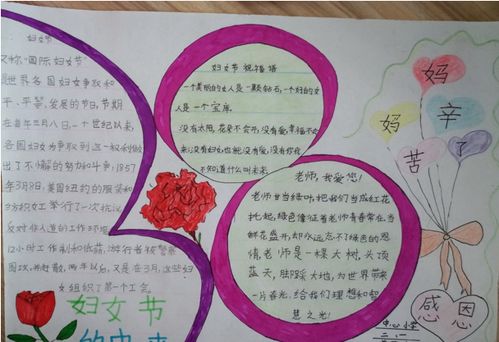 妇女节
又称“国际妇女节”
是世界各国妇女争取和
平、平等、发展的节日,节期
在每年三月八日。一个世纪以来,
各国妇女为争取到这一权利做
出了不懈的努力和斗争:1857
年3月8日,美国纽约的服装和
纺织女工举行了一次抗议,
反对非人道的工作环境,
12小时工作制和低薪。游行者被警察
围攻,并赶散,两年以后,又是在3月,这些妇
女组织了第一个工会。
妇女节
的由来
妇女节祝福语
一个美丽的女人是一颗钻石,一个好的女
人是一个宝库。
没有太阳,花朵不会开,没有爱,幸福不会
来;没有妇女,也就没有爱,没有你我
不知道什么叫未来。
老师,我爱您!
老师甘当绿叶,把我们当成红花
托起,绿色象征着老师青春常在,当
鲜花盛开,却永远忘不了绿色的恩
情。老师是一棵大树,头顶
蓝天,脚踩大地,为世界带来
一片春光,给我们理想和智
慧之光!
妈
妈
辛
苦
了
感恩
中心小学